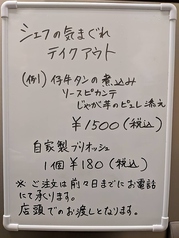 シェフの気まぐれ
テイクアウト
(例) 仔牛タンの煮込み
ソースピカンテ
じゃが芋のピュレ添え
¥1500(税込)
自家製ブリオッシュ
1個¥180(税込)
※ ご注文は前々日までにお電話
にて承ります。
店頭でのお渡しとなります。